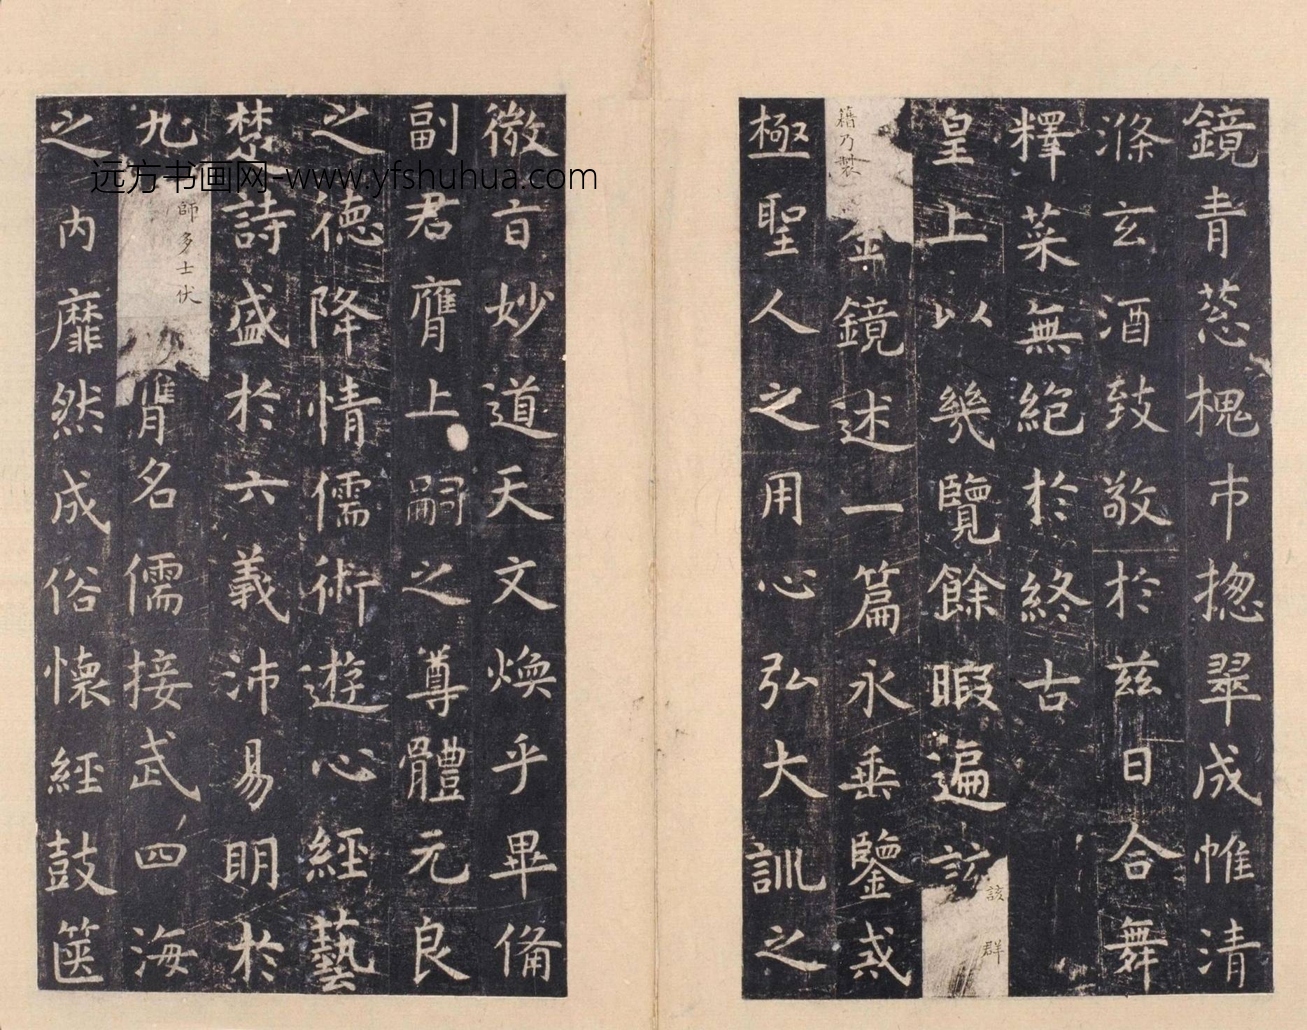 鏡青葱槐市揔翠成帷清
滌玄酒致敬於兹日合舞
釋菜無絕於終古
皇上以幾覽餘暇遍該群
籍乃製金鏡述一篇永垂鑒戒
極聖人之用心弘大訓之
微旨妙道天文煥乎畢備
副君膺上嗣之尊體元良
之德降情儒術遊心經藝
楚詩盛於六義沛易明於
九師多士伏膺名儒接武四海
之內靡然成俗懷經鼓篋
远方书画网-www.yfshuhua.com